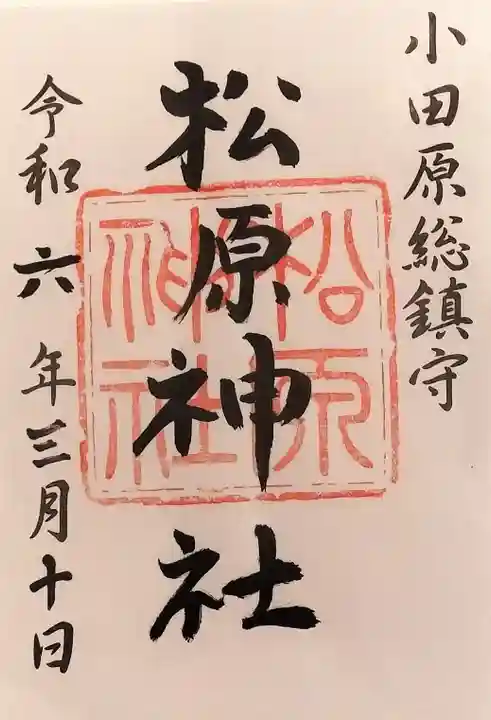 小田原総鎮守
松原神社
松原
神社
令和六年三月十日